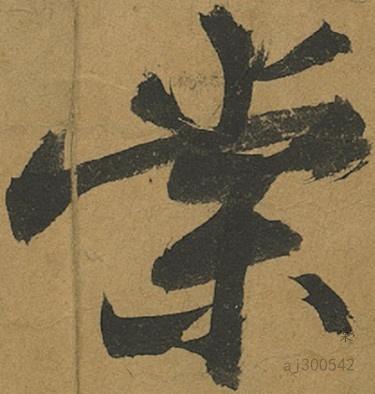 棠
棠
aj300542